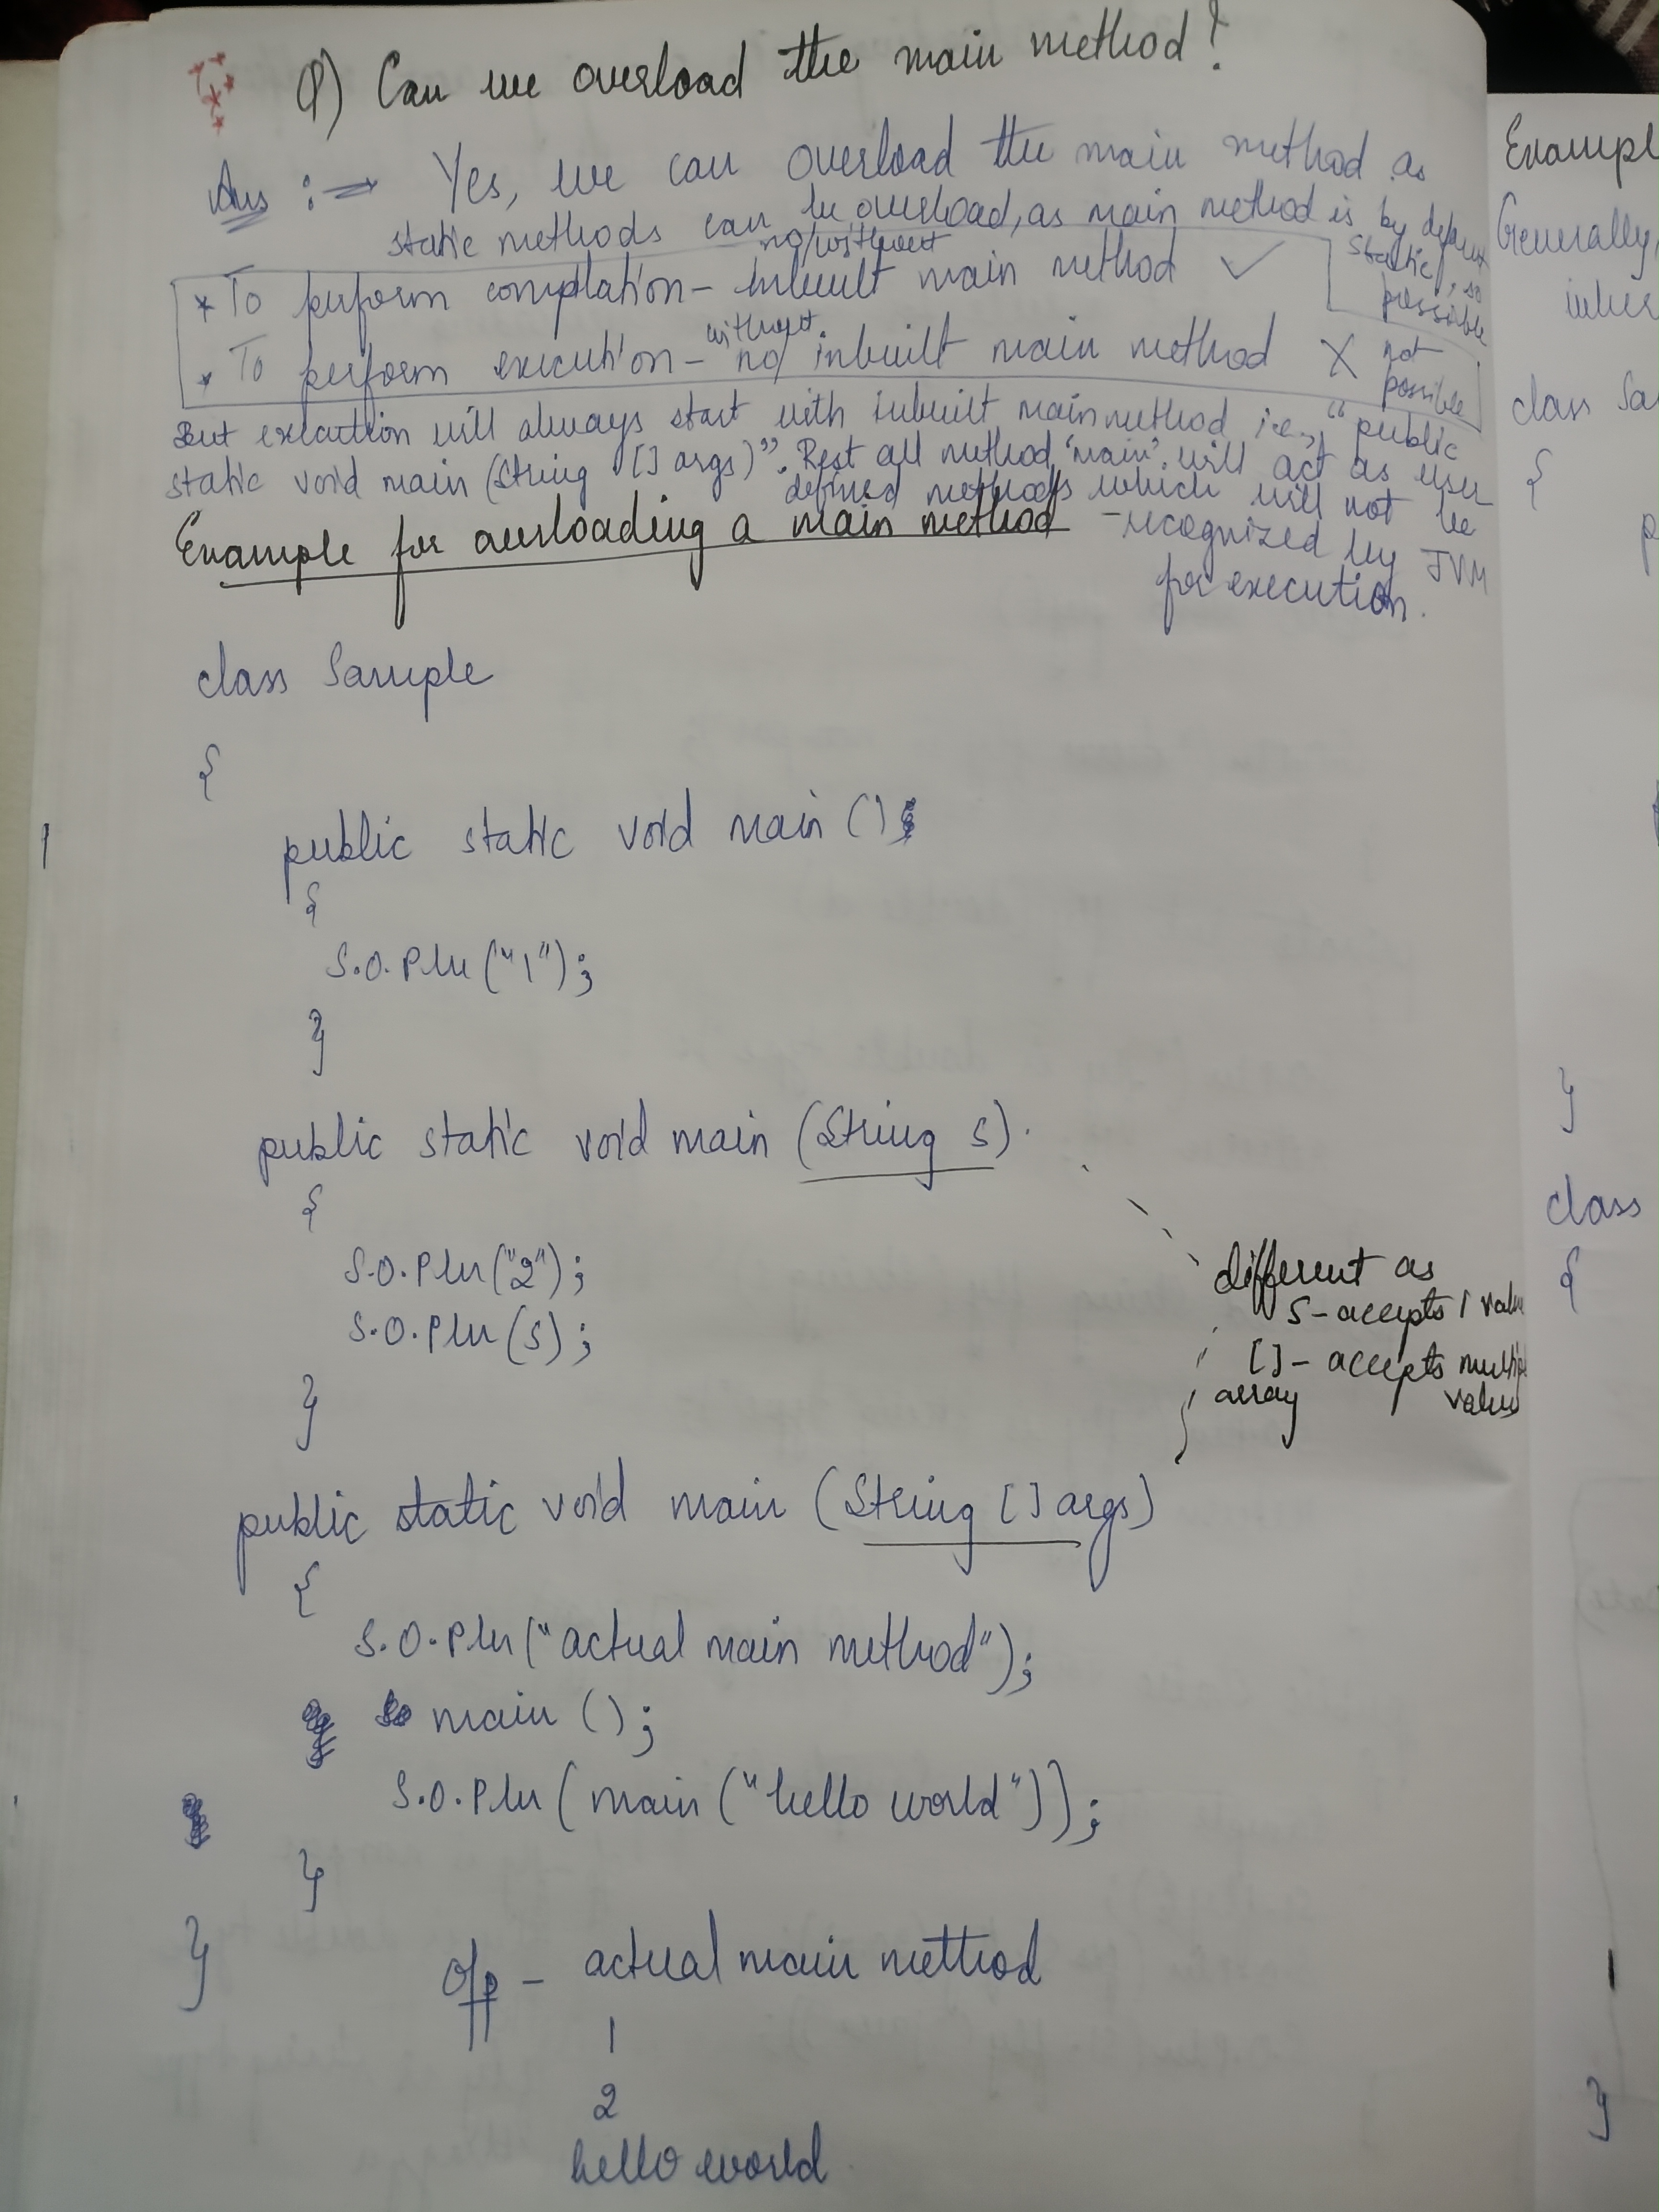 Q) Can we overload the main method?
Ans :⇒ Yes, we can overload the main method as
static methods can be overload, as main method is by default
static, so possible
* To perform compilation – no/without inbuilt main method ✓
* To perform execution – no/without inbuilt main method X not possible
But execution will always start with inbuilt main method i.e., "public
static void main (String [] args)". Rest all method 'main' will act as user
defined methods which will not be
recognized by JVM
for execution.
Example for overloading a main method
class Sample
{
public static void main ()
{
S.O.Pln ("1");
}
public static void main (String s)
{
S.O.Pln ("2");
S.O.Pln (s);
}
different as
S – accepts 1 value
[] – accepts
array
public static void main (String [] args)
{
S.O.Pln ("actual main method");
main ();
S.O.Pln (main ("hello world"));
}
}
O/p – actual main method
1
2
hello world
Generally,
class
{
}
class
{
}